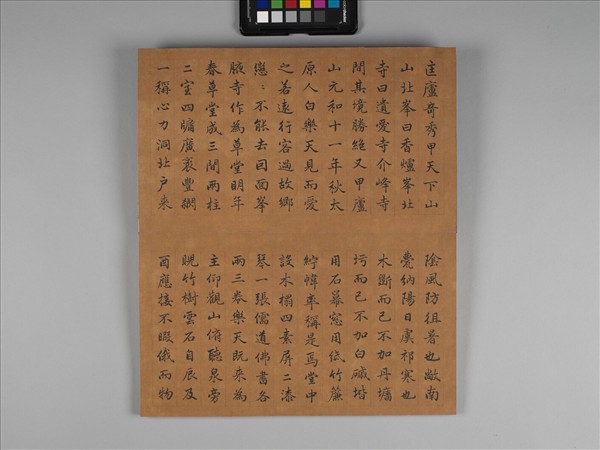 匡廬奇秀甲天下山
山北峯曰香爐峯北
寺曰遺愛寺介峰寺
間其境勝絕又甲廬
山元和十一年秋太
原人白樂天見而愛
之若遠行客過故鄉
戀〻不能去因面峯
腋寺作為草堂明年
春草堂成三間兩柱
二室四牖廣袤豐
一稱心力洞北戶來
陰風防徂暑也敞南
甍納陽日虞祁寒也
木斲而已不加丹墻
圬而已不加白磩堦
用石冪窓用紙竹簾
紵幃率稱是焉堂中
設木榻四素屏二漆
琴一張儒道佛書各
兩三卷樂天既來為
主仰觀山俯聽泉旁
睨竹樹雲石自辰及
酉應接不暇俄而物